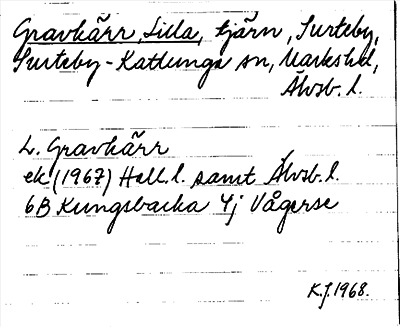 Gravkärr, Lilla, tjärn, Surteby,
Surteby-Kattunga sn, Marks hd,
Älvsb. l.
L. Gravkärr
ek (1967) Hall. l. samt Älvsb. l.
6B Kungsbacka 4j Vågerse
K.J. 1968.